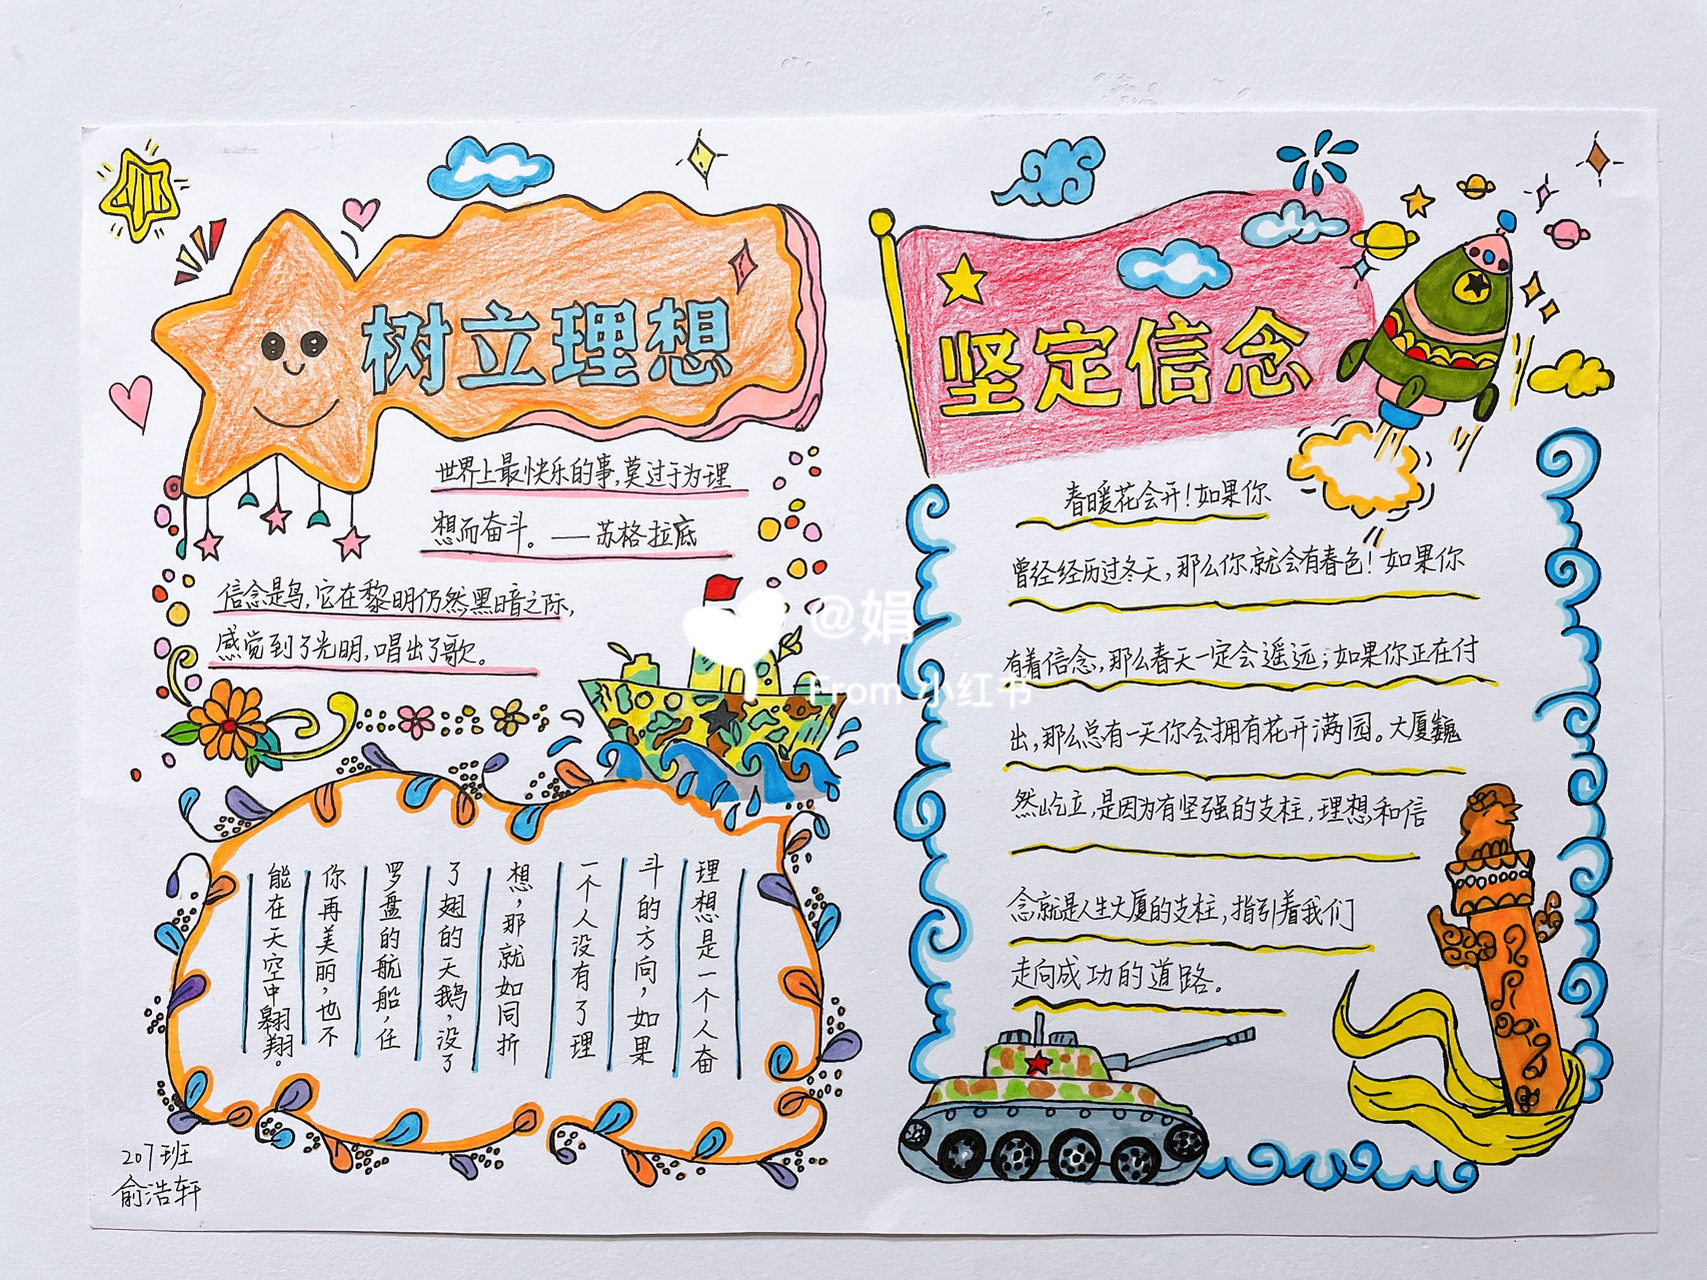 树立理想
世界上最快乐的事,莫过于为理
想而奋斗。——苏格拉底
信念是鸟,它在黎明仍然黑暗之际,
感觉到了光明,唱出了歌。
理想是一个人奋
斗的方向,如果
一个人没有了理
想,那就如同折
了翅的天鹅,没了
罗盘的航船,任
你再美丽,也不
能在天空中翱翔。
207班
俞浩轩
坚定信念
春暖花会开!如果你
曾经经历过冬天,那么你就会有春色!如果你
有着信念,那么春天一定会遥远;如果你正在付
出,那么总有一天你会拥有花开满园。大厦巍
然屹立,是因为有坚强的支柱,理想和信
念就是人生大厦的支柱,指引着我们
走向成功的道路。
@娟
From 小红书